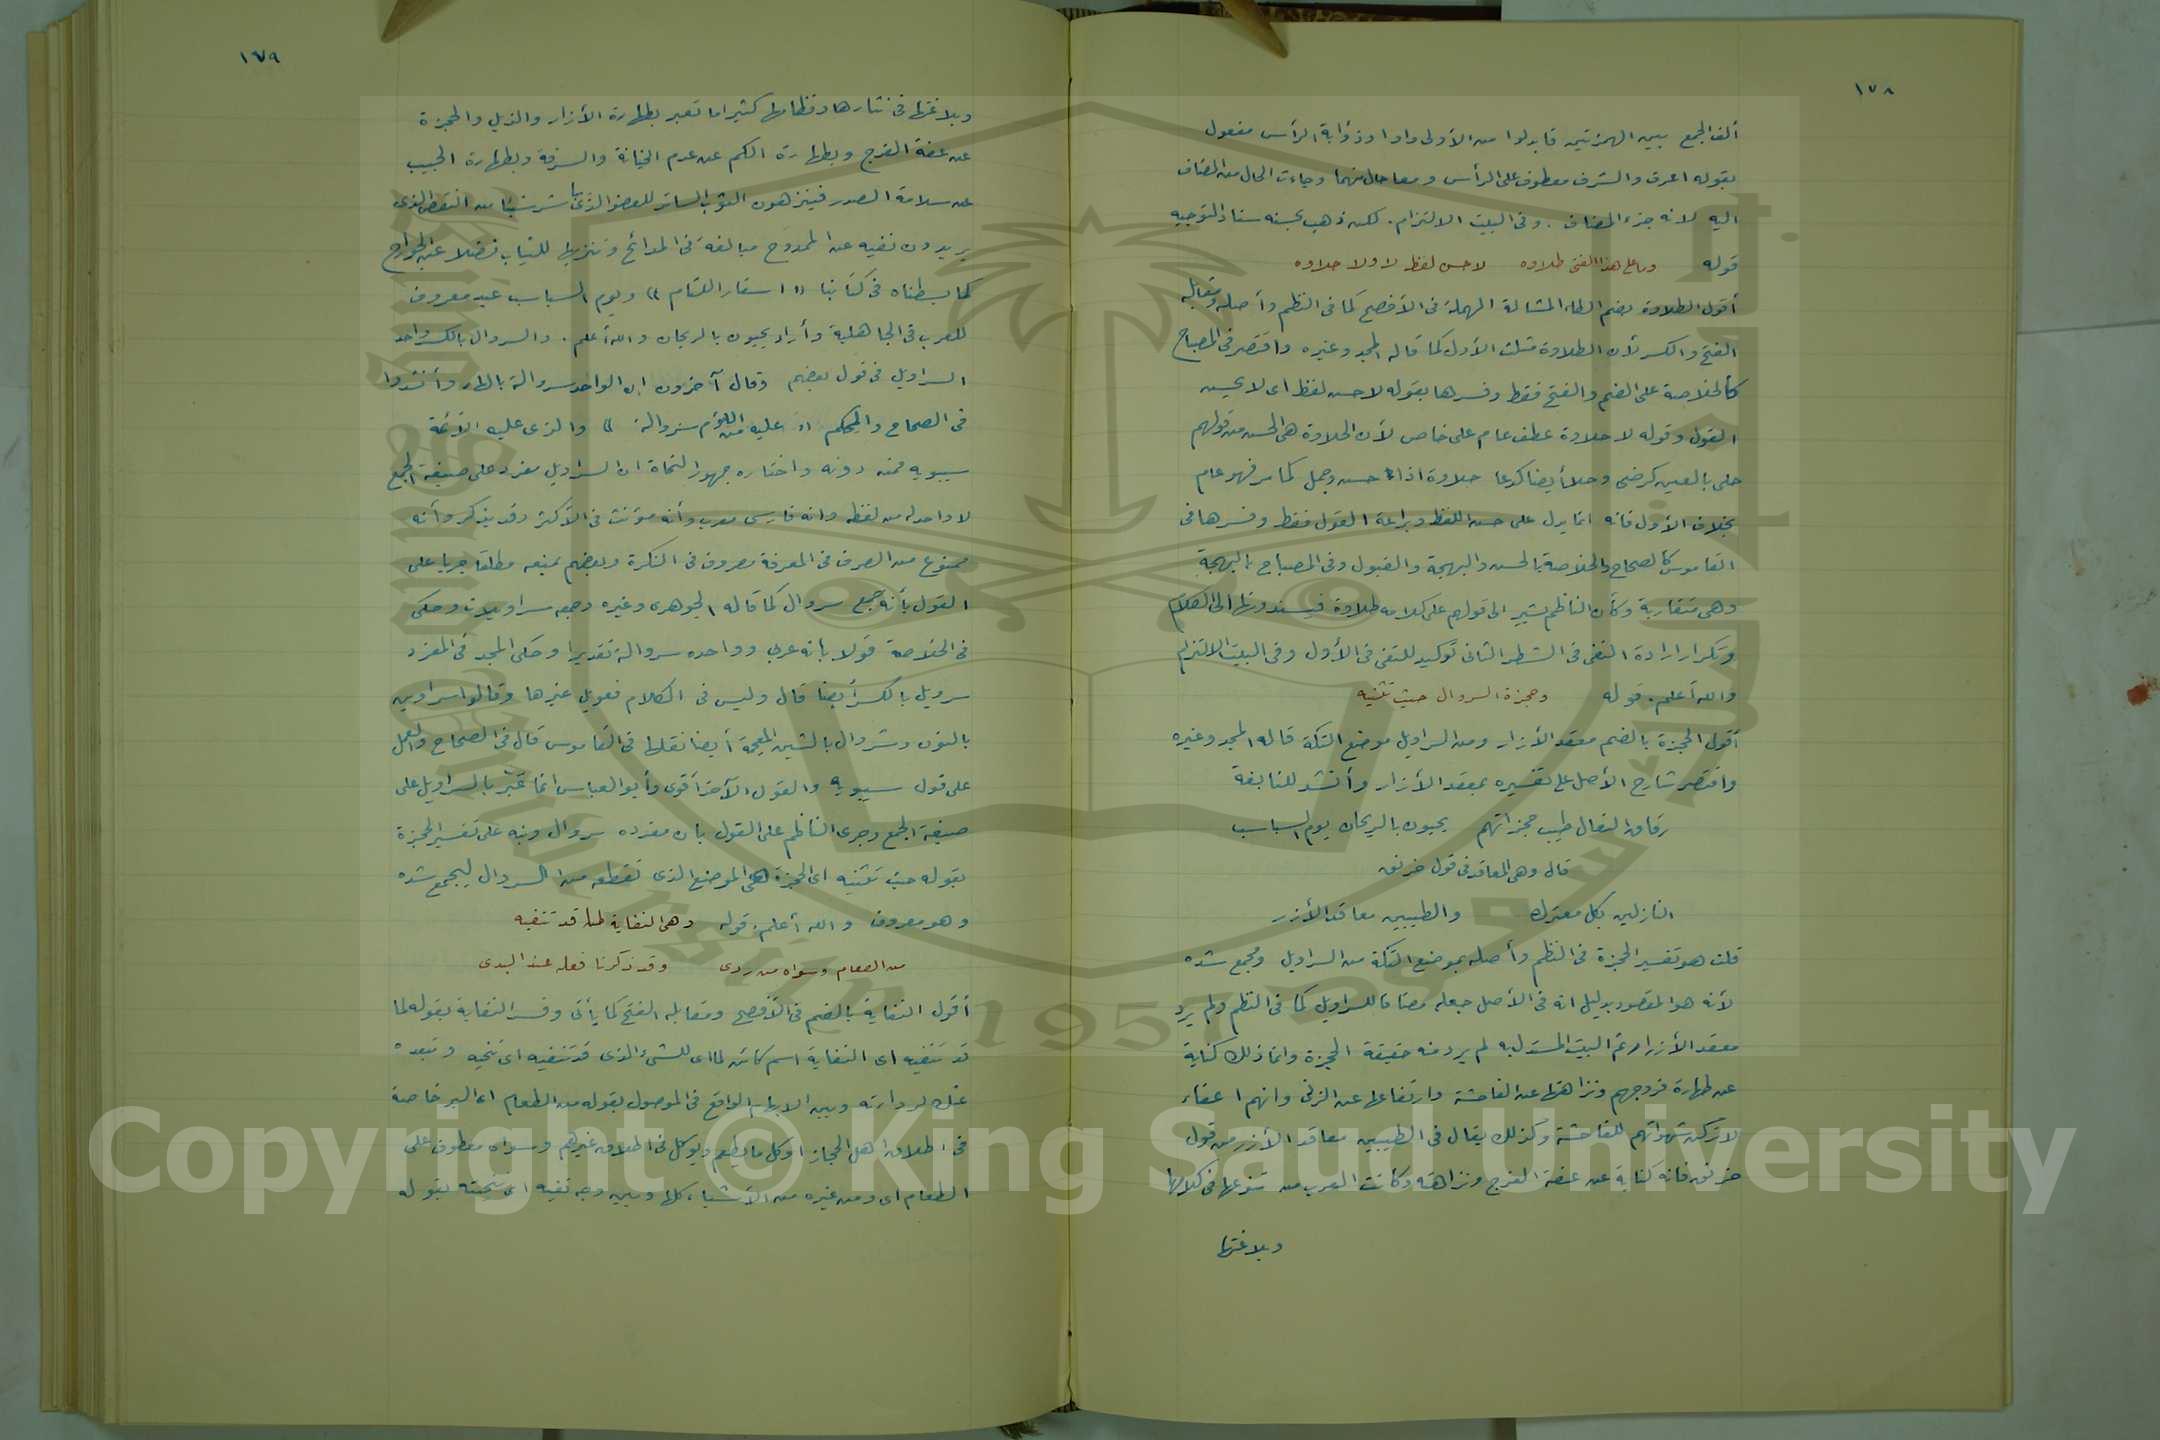 ١٧٨
ألف الجمع بين الهمزتين فابدلوا من الأولى واوا وذؤابة الرأس مفعول
بقوله اعرف والشرف معطوف على الرأس ومعا حال منهما وجاءت الحال من المضاف
اليه لانه جزء المضاف . وفى البيت الالتزام . لكن ذهب بحسنه سناد التوجيه
قوله وما على هذا الفتى طلاوه لا حسن لفظ لا ولا حلاوه
أقول الطلاوة بضم الطاء المشالة المهملة فى الأفصح كما فى النظم وأصله ومقابله
الفتح والكسر لأن الطلاوة مثلث الأول كما قاله المجد وغيره واقتصر فى المصباح
كالخلاصة على الضم والفتح فقط وفسرها بقوله لا حسن لفظ اى لا يحسن
القول وقوله لا حلاوة عطف عام على خاص لأن الحلاوة هى الحسن من قولهم
حلى بالعين كرضى وحلا أيضا كدعا حلاوة اذا حسن وجمل كما مر فهو عام
بخلاف الأول فانه انما يدل على حسن اللفظ وبراعة القول فقط وفسرها فى
القاموس كالصحاح والخلاصة بالحسن والبهجة والقبول وفى المصباح بالبهجة
وهى متقاربة وكأن الناظم يشير الى قولهم على كلامه طلاوة فيسندونها الى الكلام
وتكرار ارادة النفى فى الشطر الثانى توكيد للنفى فى الأول وفى البيت الالتزام
والله أعلم . قوله وحجزة السروال حيث تثنيه
أقول الحجزة بالضم معقد الأزار ومن السراويل موضع التكة قاله المجد وغيره
واقتصر شارح الأصل على تفسيره بمعقد الأزار وأنشد للنابغة
رقاق النعال طيب حجزاتهم يحيون بالريحان يوم السباسب
قال وهى المعاقد فى قول خرنق
النازلين بكل معترك والطيبين معاقد الأزر
قلت هو تفسير الحجزة فى النظم وأصله بموضع التكة من السراويل ومجمع شده
لأنه هو المقصود بدليل انه فى الأصل جعله مضافا للسراويل كما فى النظم ولم يرد
معقد الأزار ثم البيت المستدل به لم يرد منه حقيقة الحجزة وانما ذلك كناية
عن طهارة فروجهم ونزاهتها عن الفاحشة وارتفاعها عن الزنى وانهم اعفاء
لا تركن شهواتهم للفاحشة وكذلك يقال فى الطيبين معاقد الأزر من قول
خرنق فانه كناية عن عفة الفرج ونزاهته وكانت العرب من تنوعها فى كلامها
وبلاغتها
١٧٩
وبلاغتها فى نثارها ونظامها كثيرا ما تعبر بطهارة الأزار والذيل والحجزة
عن عفة الفرج وبطهارة الكم عن عدم الخيانة والسرقة وبطهارة الجيب
عن سلامة الصدر فينزهون الثوب الساتر للعضو الذى باشر شيئا من النقص الذى
يريدون نفيه عن الممدوح مبالغة فى المدائح وتنزيها للثياب فضلا عن الجوارح
كما بسطناه فى كتابنا (( اسفار اللثام )) ويوم السباسب عيد معروف
للعرب فى الجاهلية وأراد يحيون بالريحان والله أعلم . والسروال بالكسر واحد
السراويل فى قول بعضهم وقال آخرون ان الواحد سروالة بالهاء وأنشدوا
فى الصحاح والمحكم (( عليه من اللؤم سروالة )) والذى عليه الأئمة
سيبويه فمن دونه واختاره جمهور النحاة ان السراويل مفرد على صيغة الجمع
لا واحد له من لفظه وانه فارسى معرب وأنه مؤنث فى الأكثر وقد يذكر وأنه
ممنوع من الصرف فى المعرفة مصروف فى النكرة وبعضهم يمنعه مطلقا جريا على
القول بأنه جمع سروال كما قاله الجوهرى وغيره وجمعه سراويلات وحكى
فى الخلاصة قولا بانه عربى وواحده سروالة تقديرا وحكى المجد فى المفرد
سرويل بالكسر أيضا قال وليس فى الكلام فعويل غيرها وقالوا سراوين
بالنون وشروال بالشين المعجمة أيضا نقلها فى القاموس قال فى الصحاح والعمل
على قول سيبويه والقول الآخر أقوى وأبو العباس انما عبر بالسراويل على
صيغة الجمع وجرى الناظم على القول بان مفرده سروال ونبه على تفسير الحجزة
بقوله حيث تثنيه اى الحجزة هى الموضع الذى تعطفه من السروال ليجمع شده
وهو معروف والله أعلم . قوله وهى النفاية لما قد تنفيه
من الطعام وسواه من ردى وقد ذكرنا فعله عند البدى
أقول النفاية بالضم فى الأفصح ومقابله الفتح كما يأتى وفسر النفاية بقوله لما
قد تنفيه اى النفاية اسم كائن لما اى للشىء الذى قد تنفيه اى تنحيه وتبعده
عنك لرداءته وبين الابهام الواقع فى الموصول بقوله من الطعام اى البر خاصة
فى اطلاق اهل الحجاز او كل ما يطعم ويؤكل فى اطلاق غيرهم وسواه معطوف على
الطعام اى ومن غيره من الأشياء كلها وبين وجه نفيه اى تنحيته بقوله
Copyright © King Saud University
1957